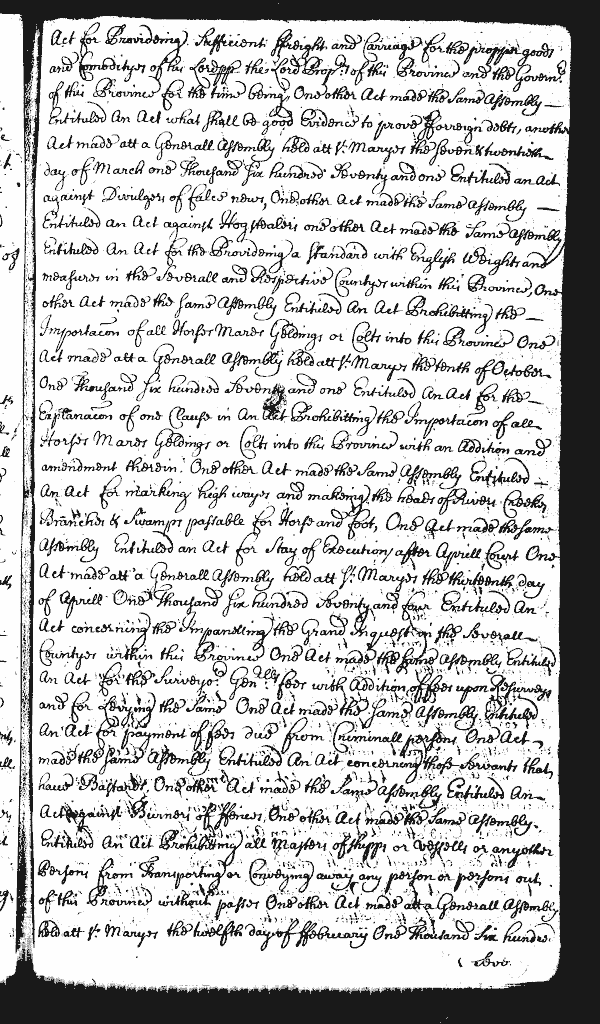 Act for Provideing Sufficient ffreight and Carriage for the propper goods
and Comodityes of his Lordpp the Lord Propr. of this Province and the Governr.
of this Province for the time being, One other Act made the Same Assembly —
Entituled An Act what shall be good Evidence to prove fforreign debts, another
Act made att a Generall Assembly held att St. Maryes the Seven & twentieth
day of March one Thousand Six hundred Seventy and one Entituled an Act
against Divulgers of false news, One other Act made the Same Assembly —
Entituled an Act against Hogstealers one other Act made the Same Assembly
Entituled An Act for the Providenig a Standard with English Weights and
measures in the Severall and Respective Countyes within this Province, One
other Act made the Same Assembly Entituled An Act Prohibitting the —
Importacon of all Horses Mares Geldings or Colts into this Province One
Act made att a Generall Assembly held att St. Maryes the tenth of October
One Thousand Six hundred Seventy and one Entituled An Act for the —
Explanacon of one Clause in An Act Prohibitting the Importacon of all
Horses Mares Geldings or Colts into this Province with an Addition and
amendment therein. One other Act made the Same Assembly Entituled —
An Act for marking high wayes and makeing the heads of Rivers Creekes
Branches & Swamps passable for Horse and foot, One Act made the same
Assembly Entituled an Act for Stay of Execution after Aprill Court One
Act made att a Generall Assembly held att St. Maryes the thirteenth day
of Aprill One Thousand Six hundred Seventy and four Entituled An
Act concerning the Impanelling the Grand Inquest in the Severall
Countyes within this Province One Act made the same Assembly Entituled
An Act for the Surveyor. Genalls fees with Addition of ffees upon Resurveys
and for Levying the Same One Act made the Same Assembly Entituled
An Act for payment of fees due from Criminall persons One Act
made the Same Assembly Entituled An Act concerning those Servants that
have Bastards, One other Act made the Same Assembly Entituled An
Act against Burners of ffences, One other Act made the Same Assembly
Entituled An Act Prohibitting all Masters of shipps or vessells or any other
Persons from Transporting or Conveying away any person or persons out
of this Province without passes One other Act made att a Generall Assembly
held att St. Maryes the twelfth day of ffebruary One Thousand Six hundred